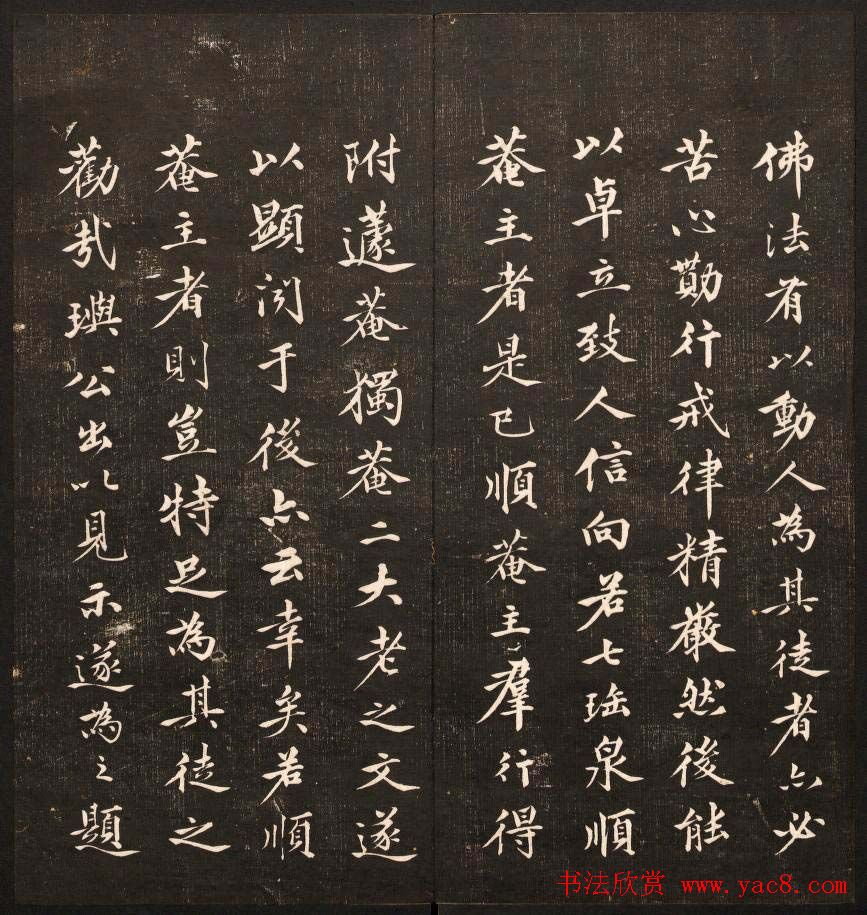 佛法有以動人為其徒者亦必
苦心勤行戒律精嚴然後能
以卓立致人信向若七瑶泉順
菴主者是已順菴主羣行得
附蘧菴獨菴二大老之文遂
以顯閲于後亦云幸矣若順
菴主者則豈特足為其徒之
勸哉璵公出以見示遂為之題
书法欣赏 www.yac8.com